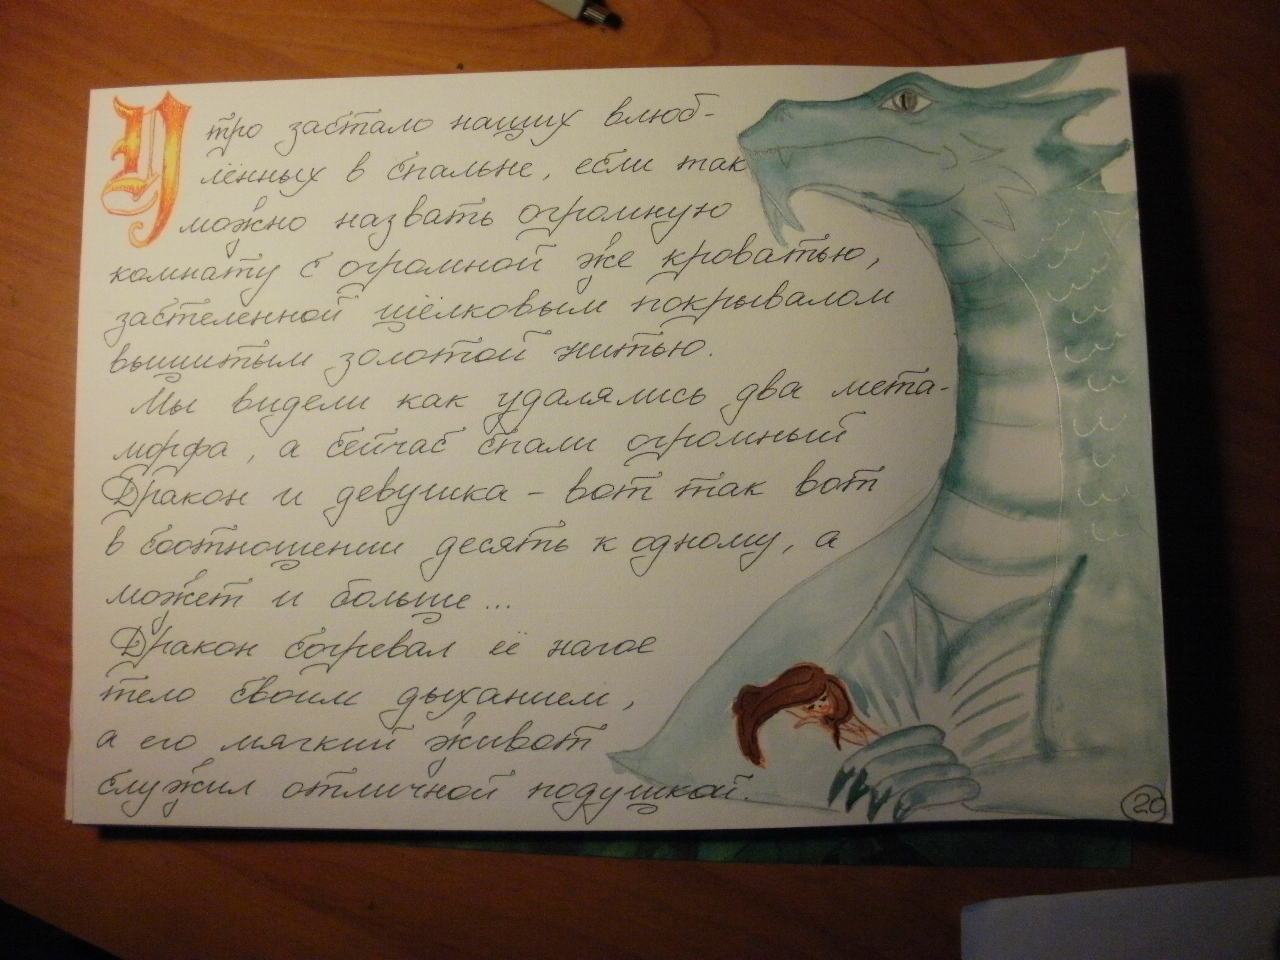 Утро застало наших влюб-
лённых в спальне, если так
можно назвать огромную
комнату с огромной же кроватью,
застеленной шёлковым покрывалом
вышитым золотой нитью.
Мы видели как удалялись два мета-
морфа, а сейчас спали огромный
Дракон и девушка - вот так вот
в соотношении десять к одному, а
может и больше...
Дракон согревал её нагое
тело своим дыханием,
а его мягкий живот
служил отличной подушкой.
20